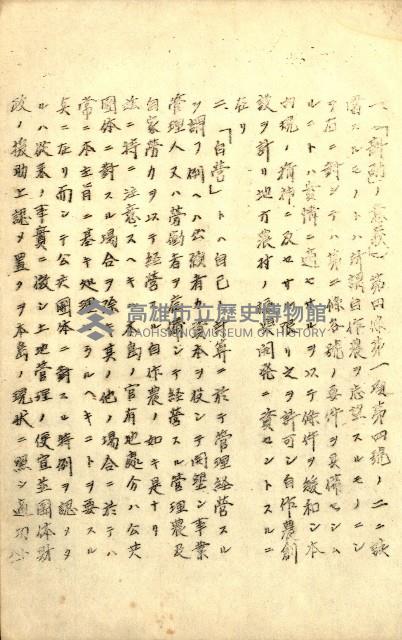 一、「對シ」ノ意義 第四條第一項第四號ノ二ニ該
當スルモノトハ所謂自作農ヲ志望スルモノニシ
テ右ニ對シテハ第二條各號ノ要件ヲ具備セシム
ルコトハ實情ニ適セサルヲ以テ條件ヲ緩和シ本
ノ精神ニ及セサル限リ之ヲ許可シ自作農創
設ヲ計リ地方農村ノ開發ニ資セントスルニ
在リ
二、「自營」トハ自己ノ計算ニ於テ管理經營スル
ヲ謂フ例ヘハ公職者カ資本ヲ投シテ開墾シ事業
管理人又ハ勞働者ヲ雇傭シテ經營スル管理農及
自家勞力ヲ以テ經營スル自作農ノ如キ是ナリ
法ニ特ニ注意スヘキハ本島ノ官有地處分ハ公共
團体ニ對スル場合ヲ除キ其ノ他ノ場合ニ於テハ
常ニ本主旨ニ基キ處理セラルヘキコトヲ要スル
矣ニ在リ而シテ公共團体ニ對スル特例ヲ認メタ
ルハ從來ノ事實ニ徵シ土地管理ノ便宜並團体財
政ノ援助上認メ置クヲ本島ノ現狀ニ照シ適切
高雄市立歷史博物館
KAOHSIUNG MUSEUM OF HISTORY